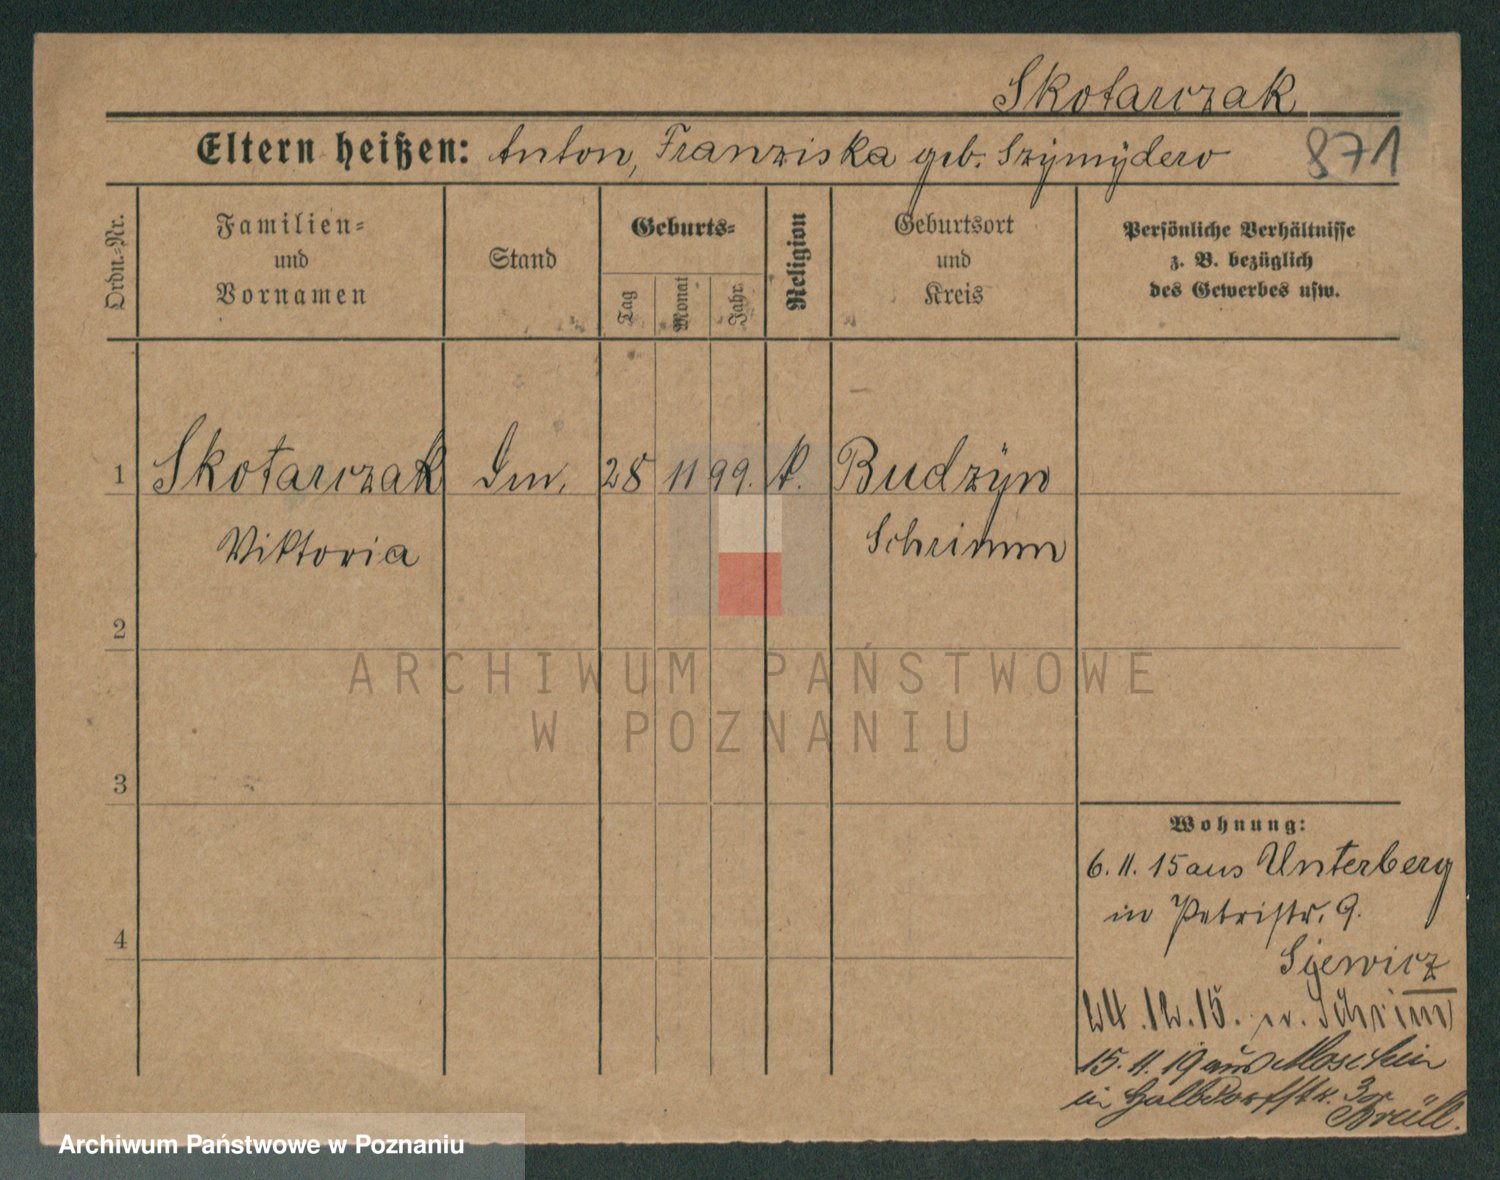 Skotarczak
871
Eltern heißen: Anton, Franziska geb. Szymydero
Ordn.=Nr.
Familien=
und
Vornamen
Stand
Geburts=
Tag
Monat
Jahr
Religion
Geburtsort
und
Kreis
Persönliche Verhältnisse
z. B. bezüglich
des Gewerbes usw.
1 Skotarczak 28 11 99. k. Budzyn
Viktoria Schrimm
2
ARCHIWUM PAŃSTWOWE
W POZNANIU
3
4
Wohnung:
6. 11. 15 aus Unterberg
in Petristr. 9.
Sjewicz
24. 12. 15. n. Schrimm
15. 11. 19 aus Moschin
in Halbdorfstr. 3
Brüll.
Archiwum Państwowe w Poznaniu